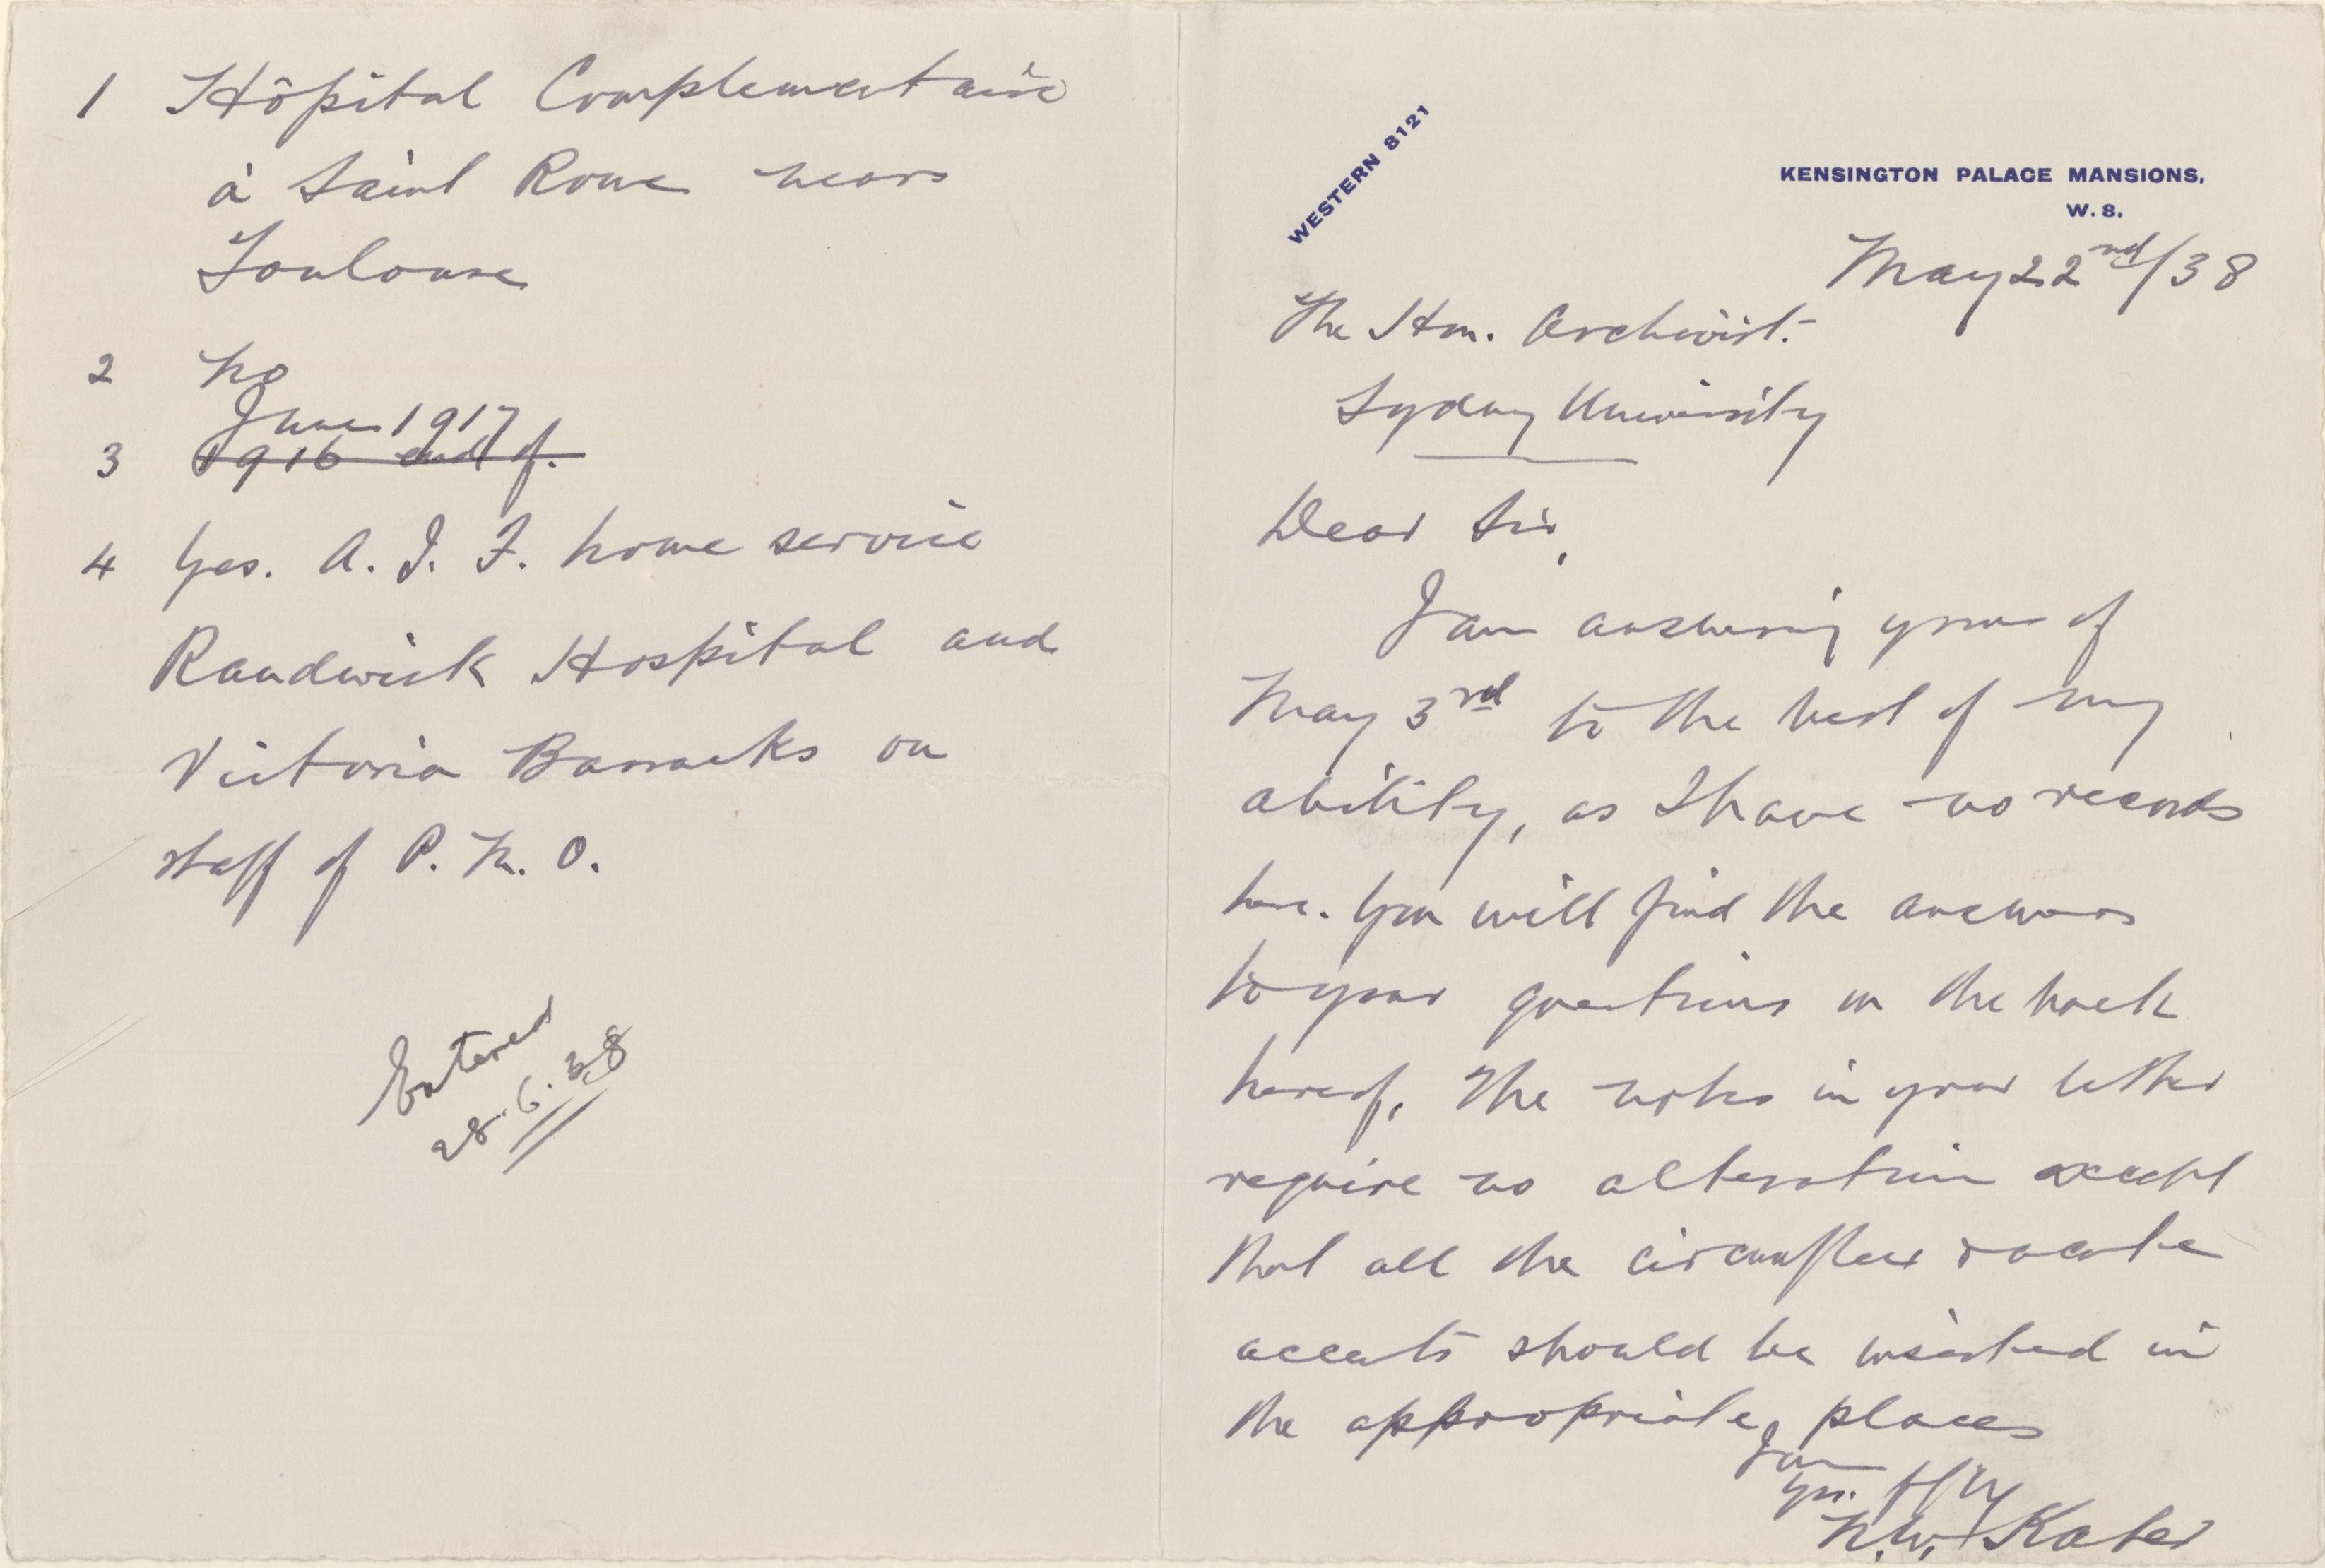 1 Hôpital Complementaire
à Saint Rome near
Toulouse
2 No
June 1917
3 1916 end of.
4 Yes. A. I. F. home service
Randwick Hospital and
Victoria Barracks on
staff of P. M. O.
Entered
28.6.38
WESTERN 8121
KENSINGTON PALACE MANSIONS,
W. 8.
May 22nd/38
The Hon. Archivist.
Sydney University
Dear Sir,
I am answering yours of
May 3rd to the best of my
ability, as I have no records
here. You will find the answers
to your questions on the back
hereof. The notes in your letter
require no alteration except
that all the circumflex & acute
accents should be inserted in
the appropriate places
I am
yrs. f/ly
N.W. Kater